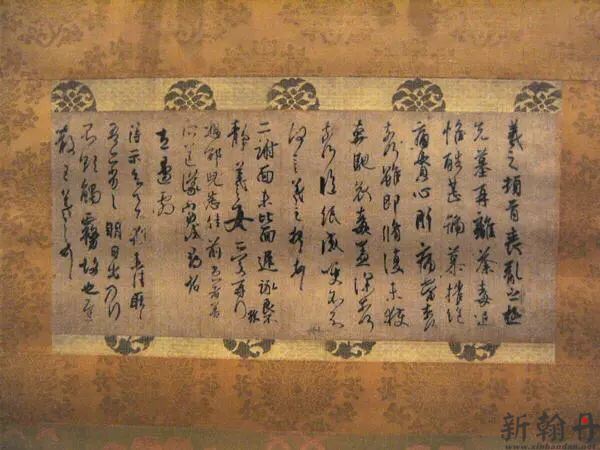 羲之頓首喪亂之極
先墓再離荼毒追
惟酷甚號慕摧絕
痛貫心肝痛當奈何
奈何雖即脩復未獲
奔馳哀毒益深奈何
奈何臨紙感哽不知
何言羲之頓首頓首
二謝面未比面遲詠良不
靜羲之女愛再拜
想邵兒悉佳前患者善
所送議當試尋省
左邊劇
得示知足下猶未佳耿耿
吾亦劣劣明日出乃行
不欲觸霧故也遲
散王羲之頓首
新翰丹
www.xinhandan.net